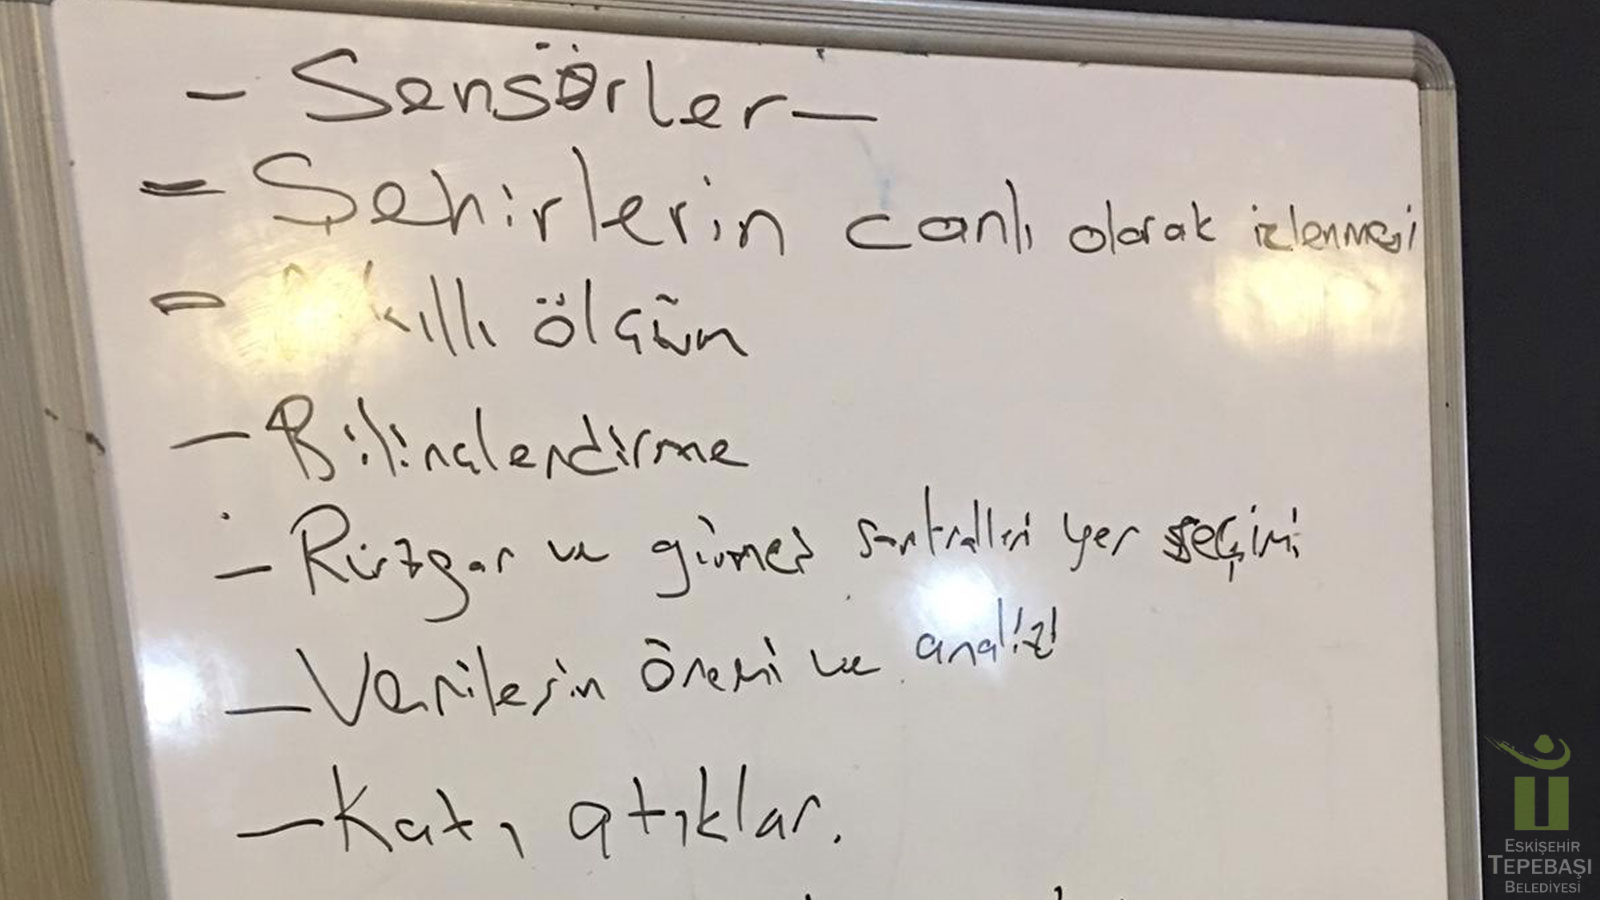 - Sensörler -
- Şehirlerin canlı olarak izlenmesi
- Akıllı ölçüm
- Bilinçlendirme
- Rüzgar ve güneş santralleri yer seçimi
- Verilerin önemi ve analizi
- Katı atıklar.
ESKİŞEHİR
TEPEBAŞI
BELEDİYESİ